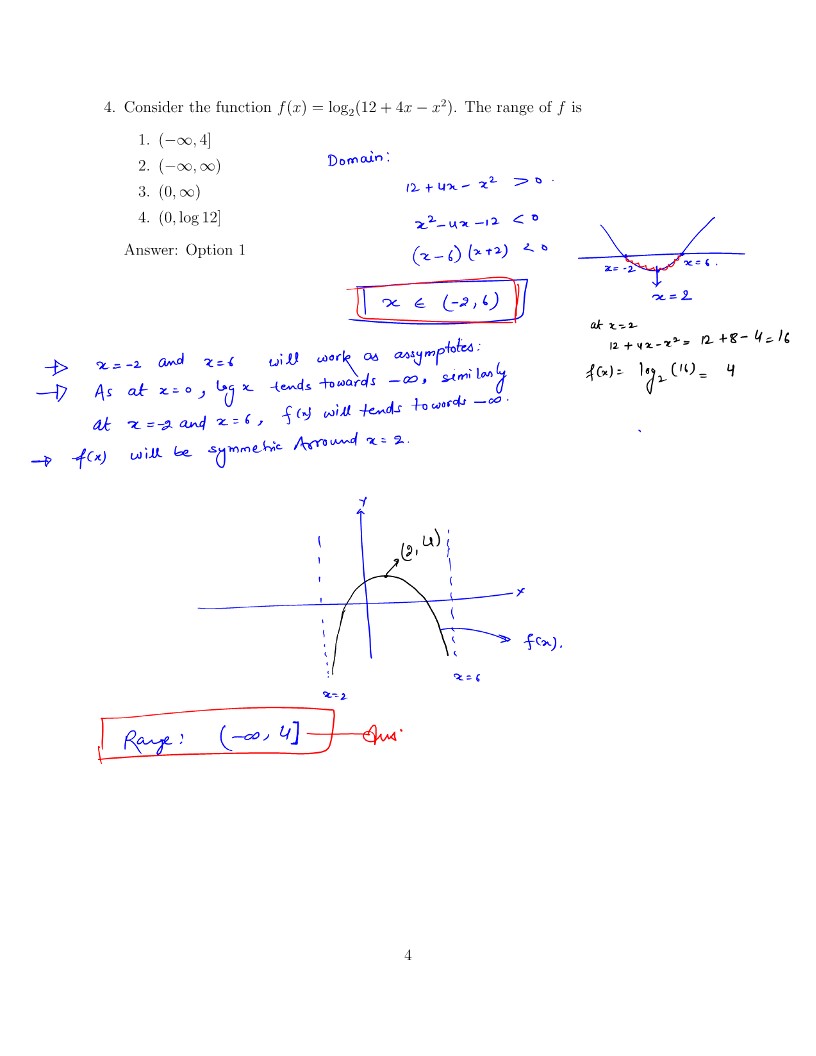 4. Consider the function f(x) = log₂(12 + 4x − x²). The range of f is
1. (−∞, 4]
2. (−∞, ∞)
3. (0, ∞)
4. (0, log 12]
Answer: Option 1
Domain:
12 + 4x − x² > 0 .
x² − 4x − 12 < 0
(x − 6) (x + 2) < 0
x ∈ (−2, 6)
x = −2
x = 6 .
x = 2
at x = 2
12 + 4x − x² = 12 + 8 − 4 = 16
f(x) = log₂ (16) = 4
x = −2 and x = 6 will work as assymptotes :
→ As at x = 0 , log x tends towards −∞ , similarly
at x = −2 and x = 6 , f(x) will tends towords −∞ .
→ f(x) will be symmetric Arround x = 2 .
Y
(2, 4)
x
f(x) .
x = 6
x = 2
Range : (−∞, 4] Ans:
4